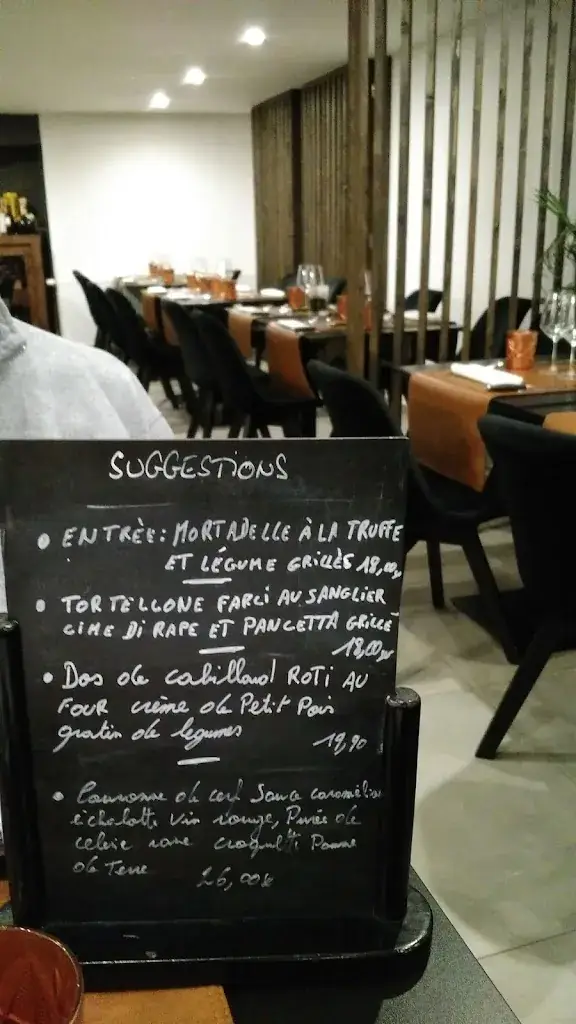 SUGGESTIONS
• ENTRÈE: MORTADELLE À LA TRUFFE
ET LÉGUME GRILLÈS 18,00
• TORTELLONE FARCI AU SANGLIER
CIME DI RAPE ET PANCETTA GRILLÉ
18,00
• Dos de cabillaud ROTI AU
FOUR crème de Petit Pois
gratin de legumes
19,90
• Couronne de cerf Sauce caramélisé
échalotte vin rouge, Purée de
celeri rave croquette Pomme
de Terre 26,00€